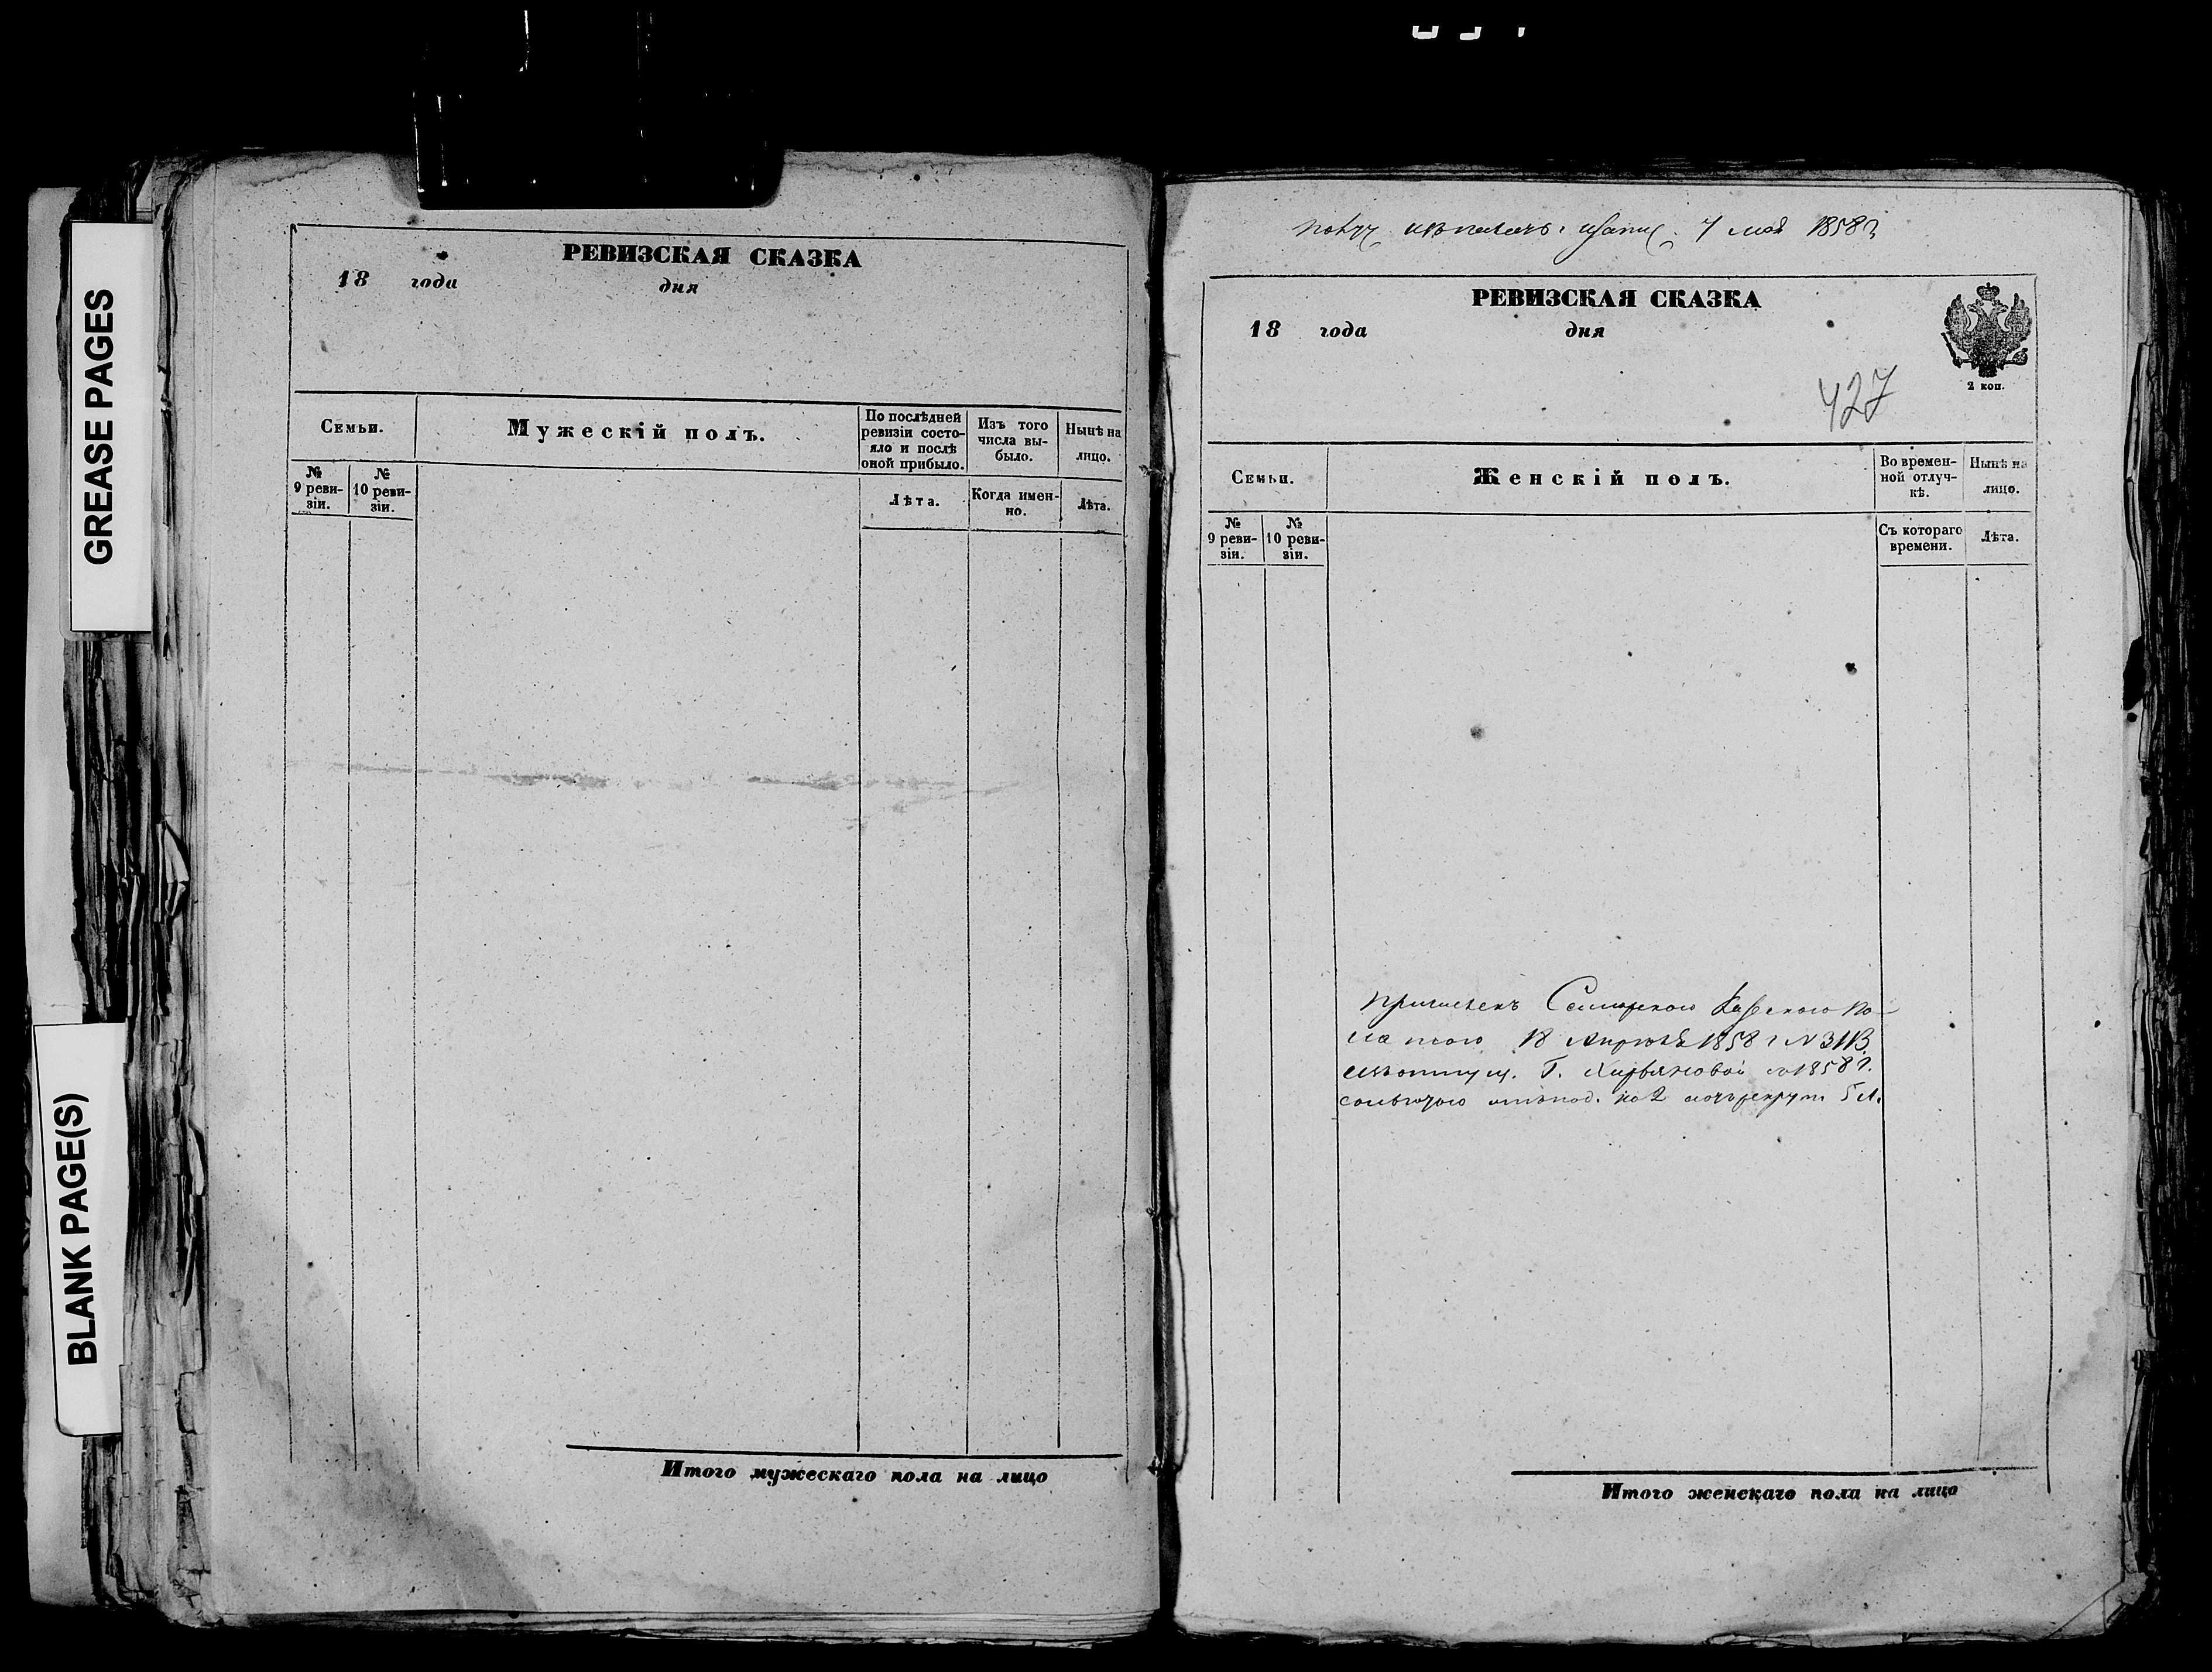 GREASE PAGES
BLANK PAGE(S)
РЕВИЗСКАЯ СКАЗКА
18 года дня
Семьи.
Мужескій полъ.
По послѣдней
ревизіи состо-
яло и послѣ
оной прибыло.
Изъ того
числа вы-
было.
Нынѣ на
лицо.
№
9 реви-
зіи.
№
10 реви-
зіи.
Лѣта.
Когда имен-
но.
Лѣта.
Итого мужескаго пола на лицо
7 мая 1858 г.
РЕВИЗСКАЯ СКАЗКА
18 года дня
2 коп.
427
Семьи.
Женскій полъ.
Во времен-
ной отлуч-
кѣ.
Нынѣ на
лицо.
№
9 реви-
зіи.
№
10 реви-
зіи.
Съ котораго
времени.
Лѣта.
18 Апрѣля 1858 г №
Г. 1858 г.
на 2
Итого женскаго пола на лицо